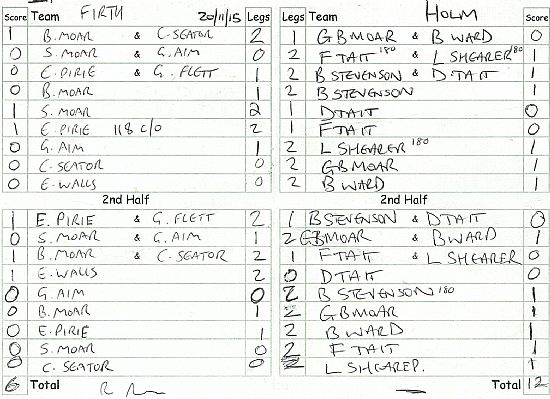 Score Team FIRTH 20/11/15 Legs Legs Team HOLM Score
1 B. MOAR & C. SEATOR 2 1 G B MOAR & B WARD 0
0 S. MOAR & G. AIM 0 2 F TAIT 180 & L SHEARER 180 1
0 C. PIRIE & G. FLETT 1 2 B STEVENSON & D TAIT 1
0 B. MOAR 1 2 B STEVENSON 1
1 S. MOAR 2 1 D TAIT 0
1 E. PIRIE 118 c/o 2 1 F TAIT 0
0 G. AIM 1 2 L SHEARER 180 1
0 C. SEATOR 0 2 G B MOAR 1
0 E. WALLS 0 2 B WARD 1
2nd Half 2nd Half
1 E. PIRIE & G. FLETT 2 1 B STEVENSON & D TAIT 0
0 S. MOAR & G. AIM 1 2 G B MOAR & B WARD 1
1 B. MOAR & C. SEATOR 2 1 F TAIT & L SHEARER 0
1 E. WALLS 2 0 D TAIT 0
0 G. AIM 0 2 B STEVENSON 180 1
0 B. MOAR 1 2 G B MOAR 1
0 E. PIRIE 1 2 B WARD 1
0 S. MOAR 0 2 F TAIT 1
0 C. SEATOR 0 2 L SHEARER. 1
6 Total Total 12